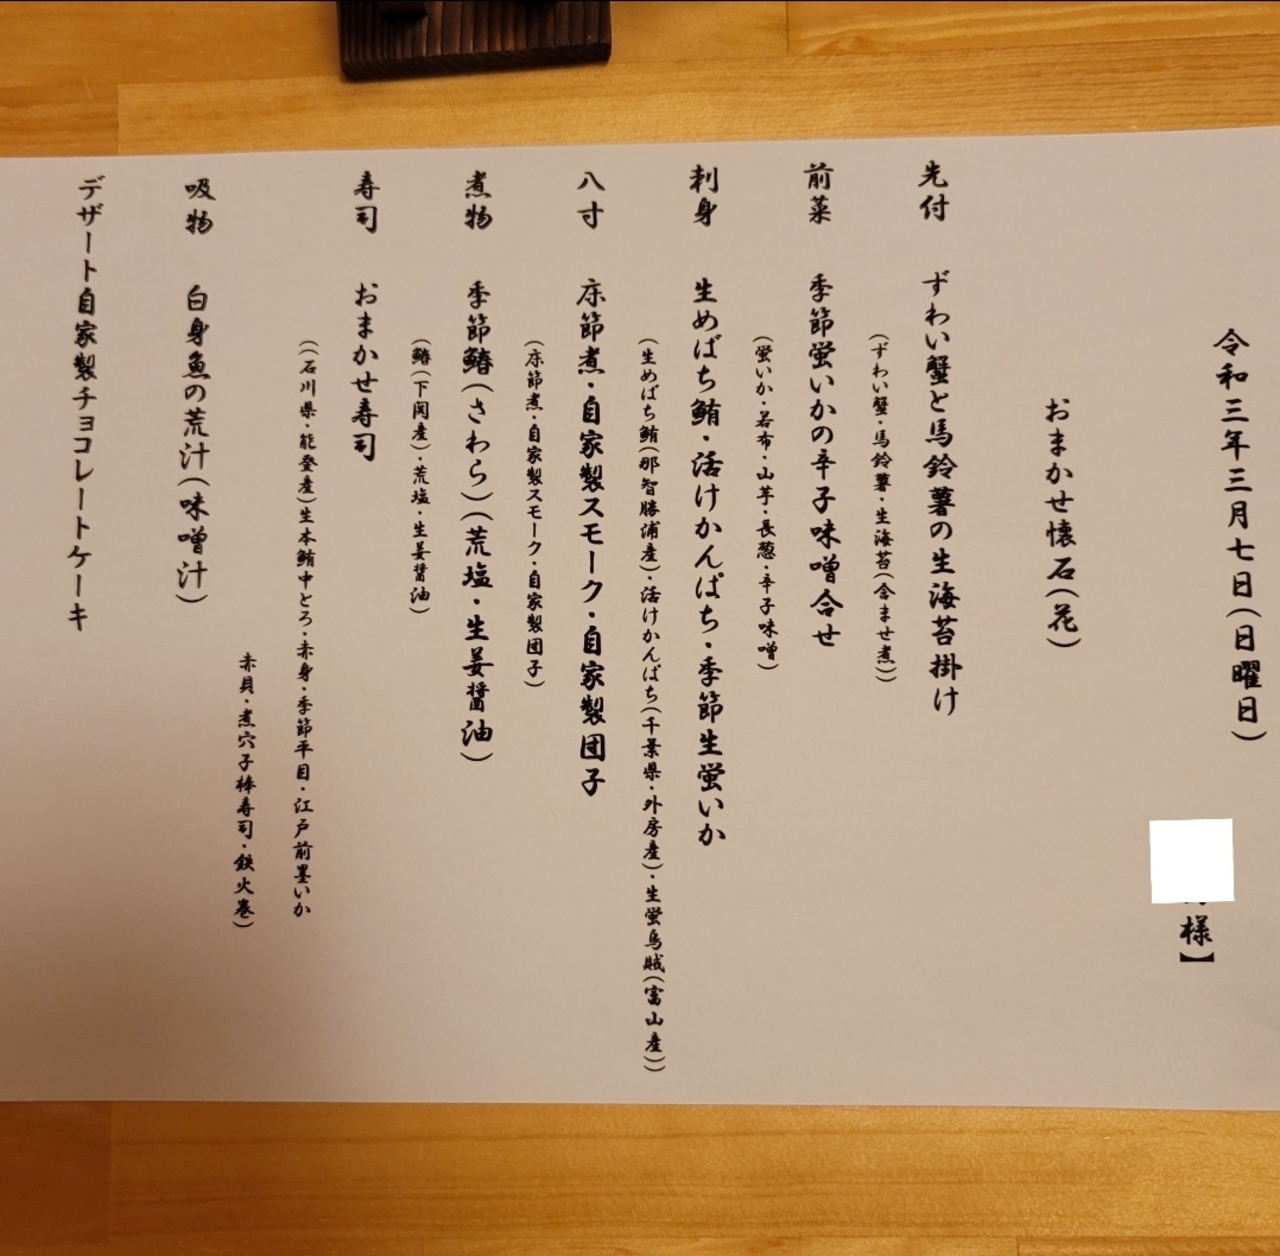 令和三年三月七日(日曜日)
様】
おまかせ懐石(花)
先付 ずわい蟹と馬鈴薯の生海苔掛け
(ずわい蟹・馬鈴薯・生海苔(含ませ煮))
前菜 季節蛍いかの辛子味噌合せ
(蛍いか・若布・山芋・長葱・辛子味噌)
刺身 生めばち鮪・活けかんぱち・季節生蛍いか
(生めばち鮪(那智勝浦産)・活けかんぱち(千葉県・外房産)・生蛍烏賊(富山産))
八寸 床節煮・自家製スモーク・自家製団子
(床節煮・自家製スモーク・自家製団子)
煮物 季節鰆(さわら)(荒塩・生姜醤油)
(鰆(下関産)・荒塩・生姜醤油)
寿司 おまかせ寿司
((石川県・能登産)生本鮪中とろ・赤身・季節平目・江戸前墨いか
赤貝・煮穴子棒寿司・鉄火巻)
吸物 白身魚の荒汁(味噌汁)
デザート自家製チョコレートケーキ